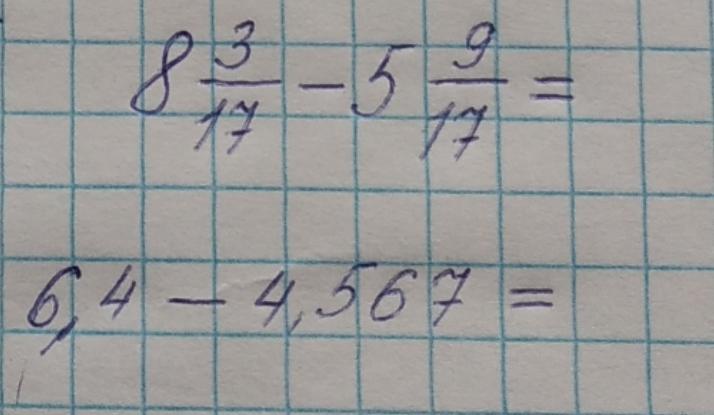 8 3/17 − 5 9/17 =
6,4 − 4,567 =